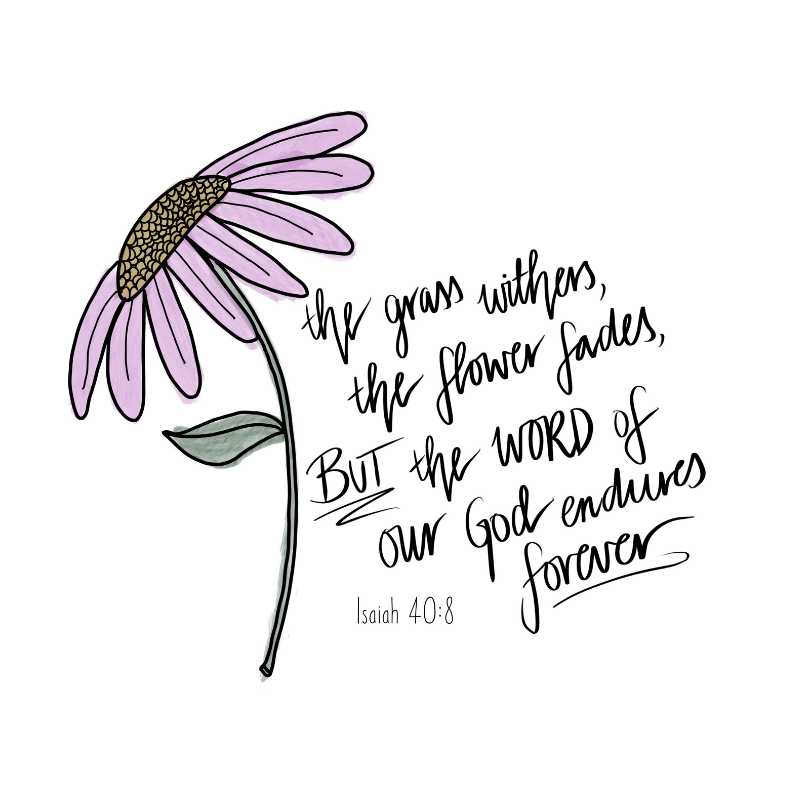 the grass withers,
the flower fades,
BUT the WORD of
our God endures
forever
Isaiah 40:8